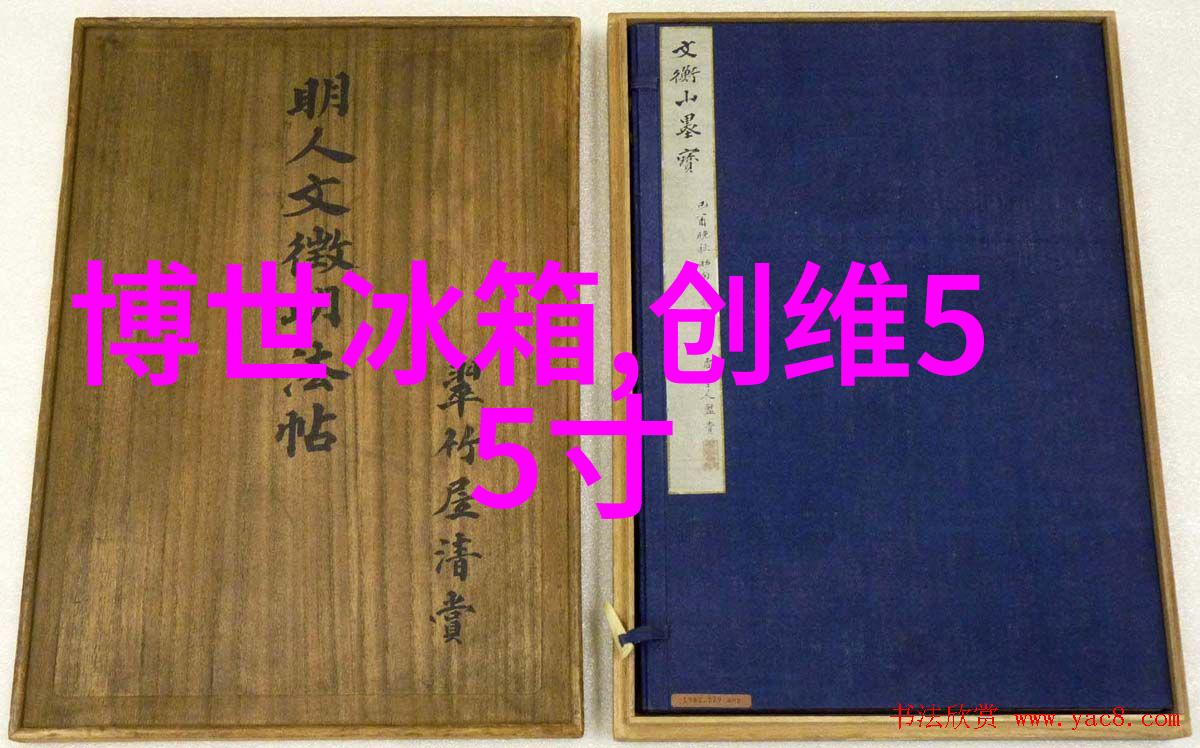 明人文徵明法帖
翠竹屋清賞
文衡山墨寶
博世冰箱,创维5
5寸
书法欣赏 www.yac8.com